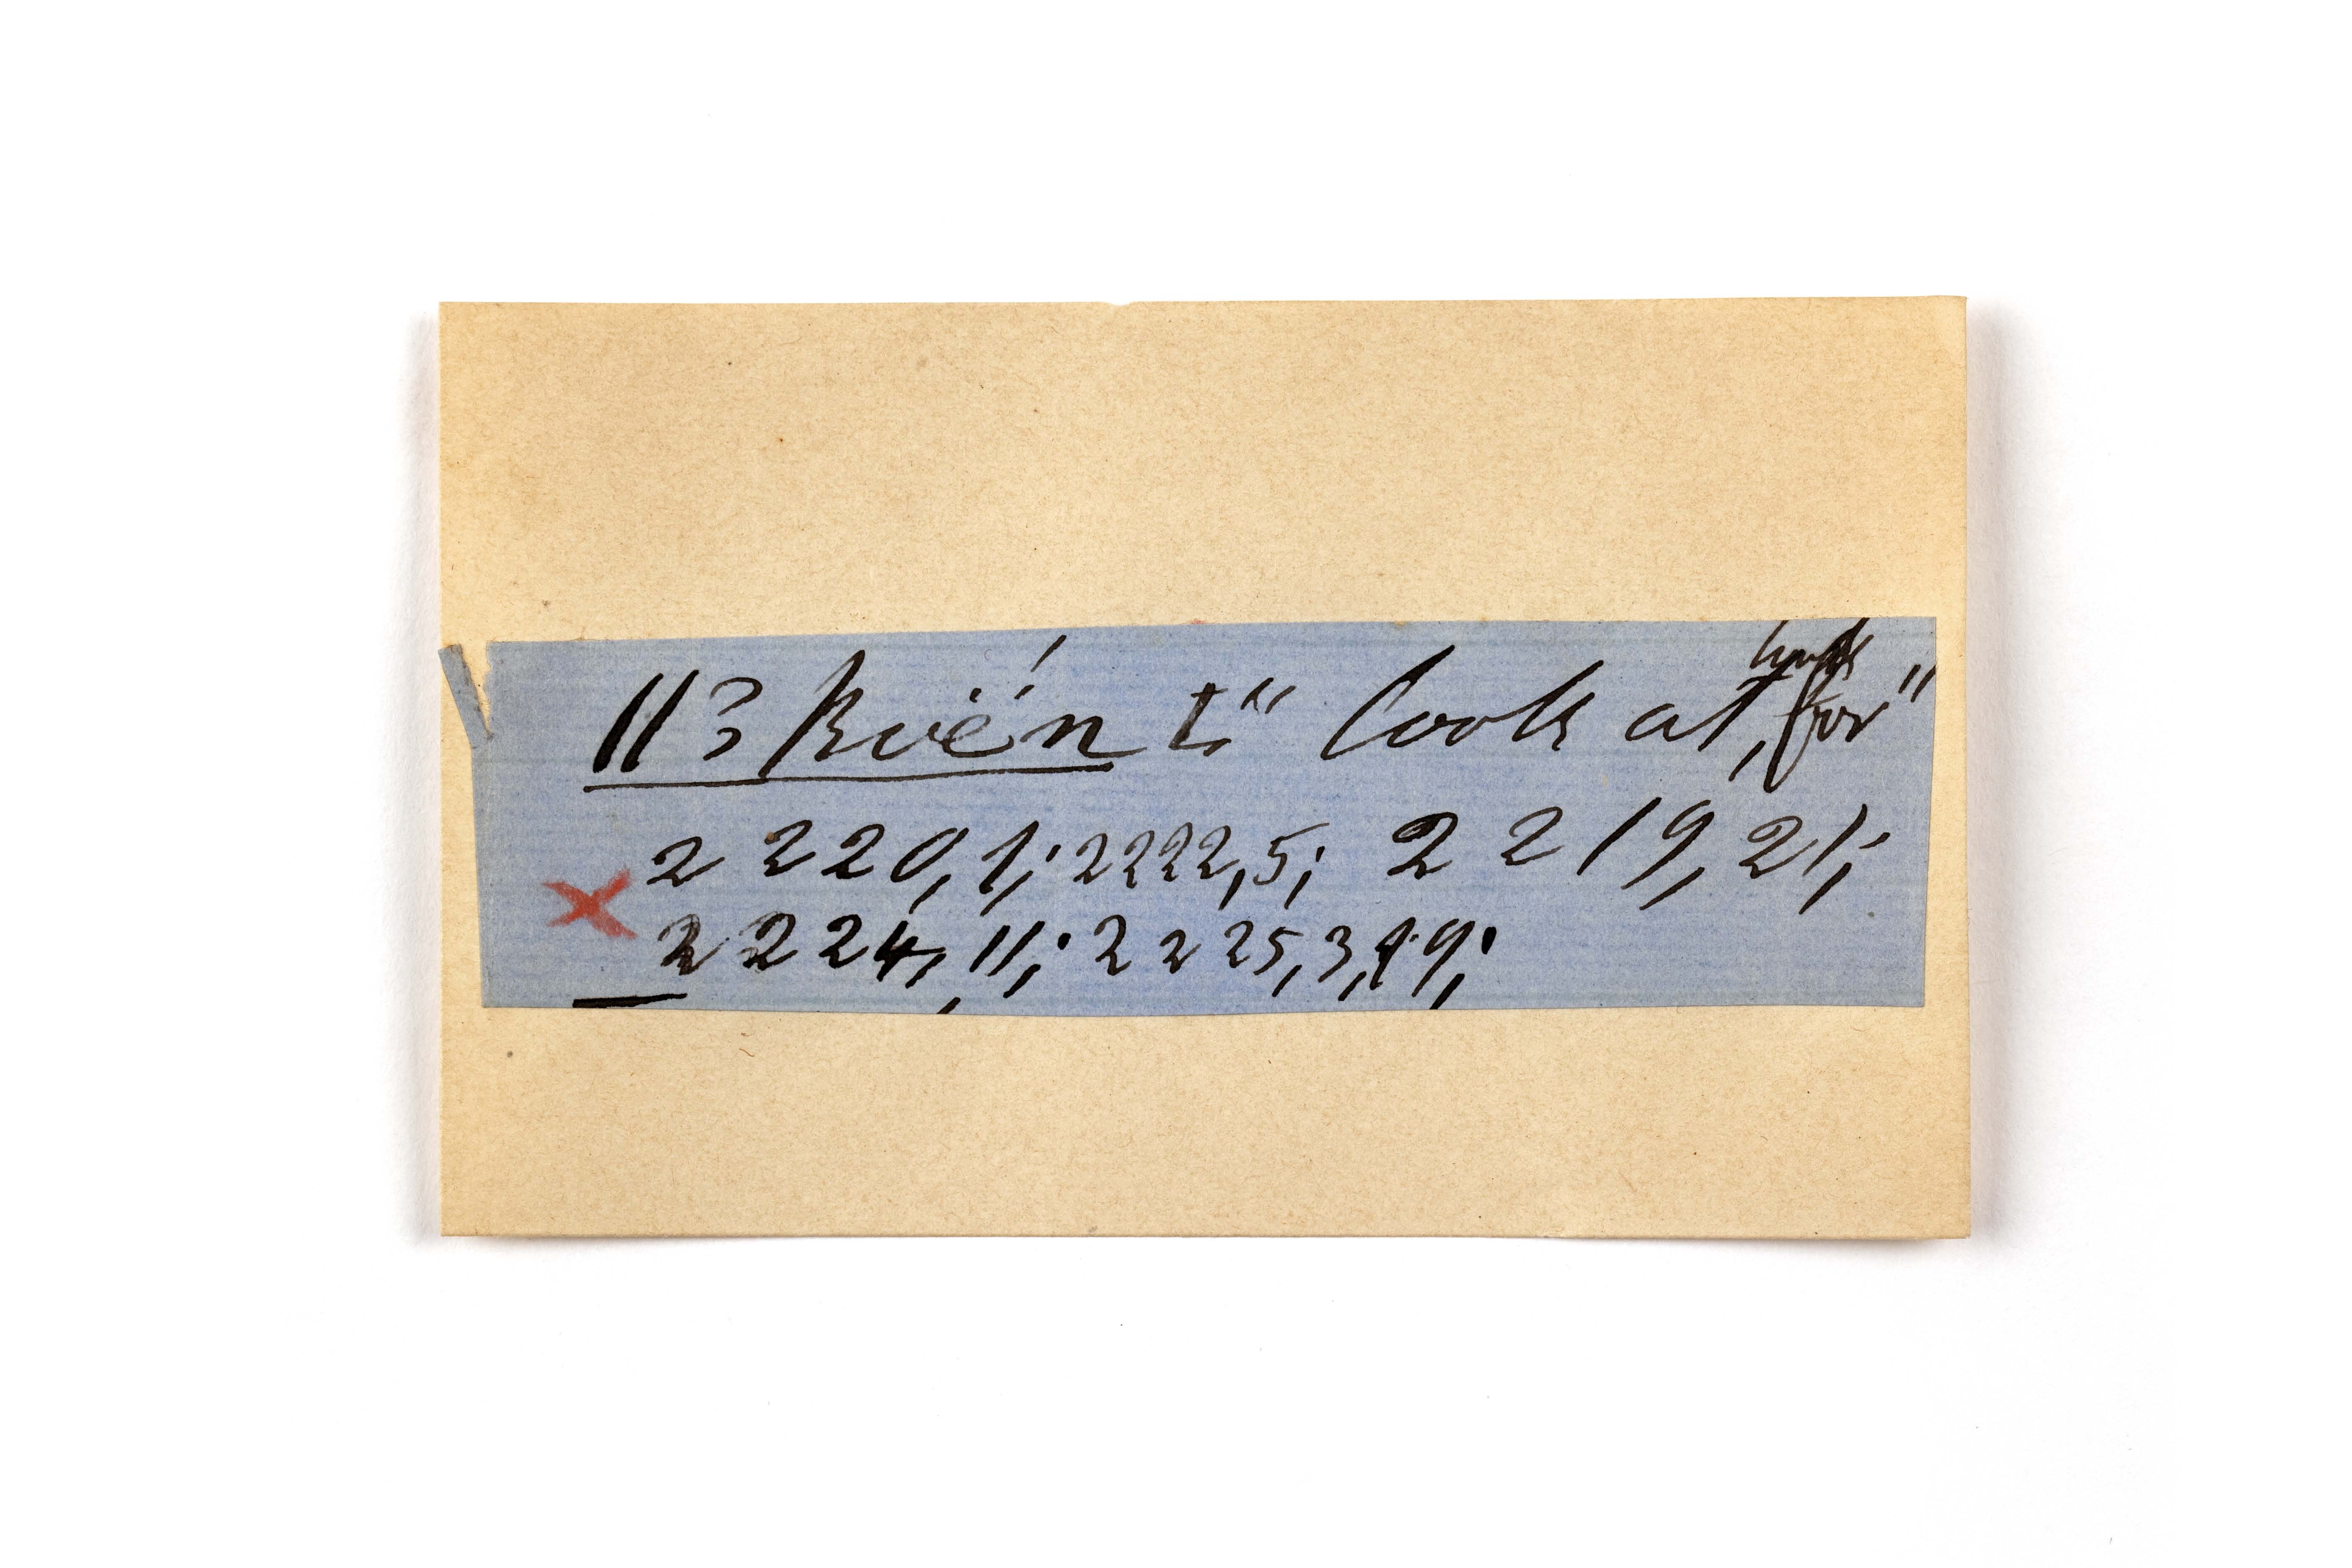 ||ʒkoë́n t. " look at, for"
2220, 1; 2222,5; 2219, 21;
2224, 11; 2225,3,